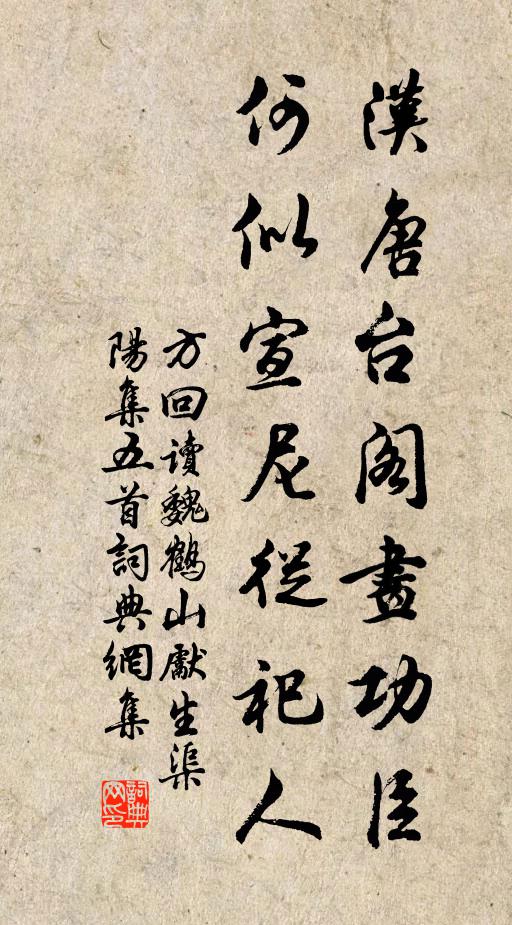 漢唐台閣畫功臣
何似宣尼從祀人
方回讀魏鶴山獻生渠
陽集五首詞典網集
詞典
网印